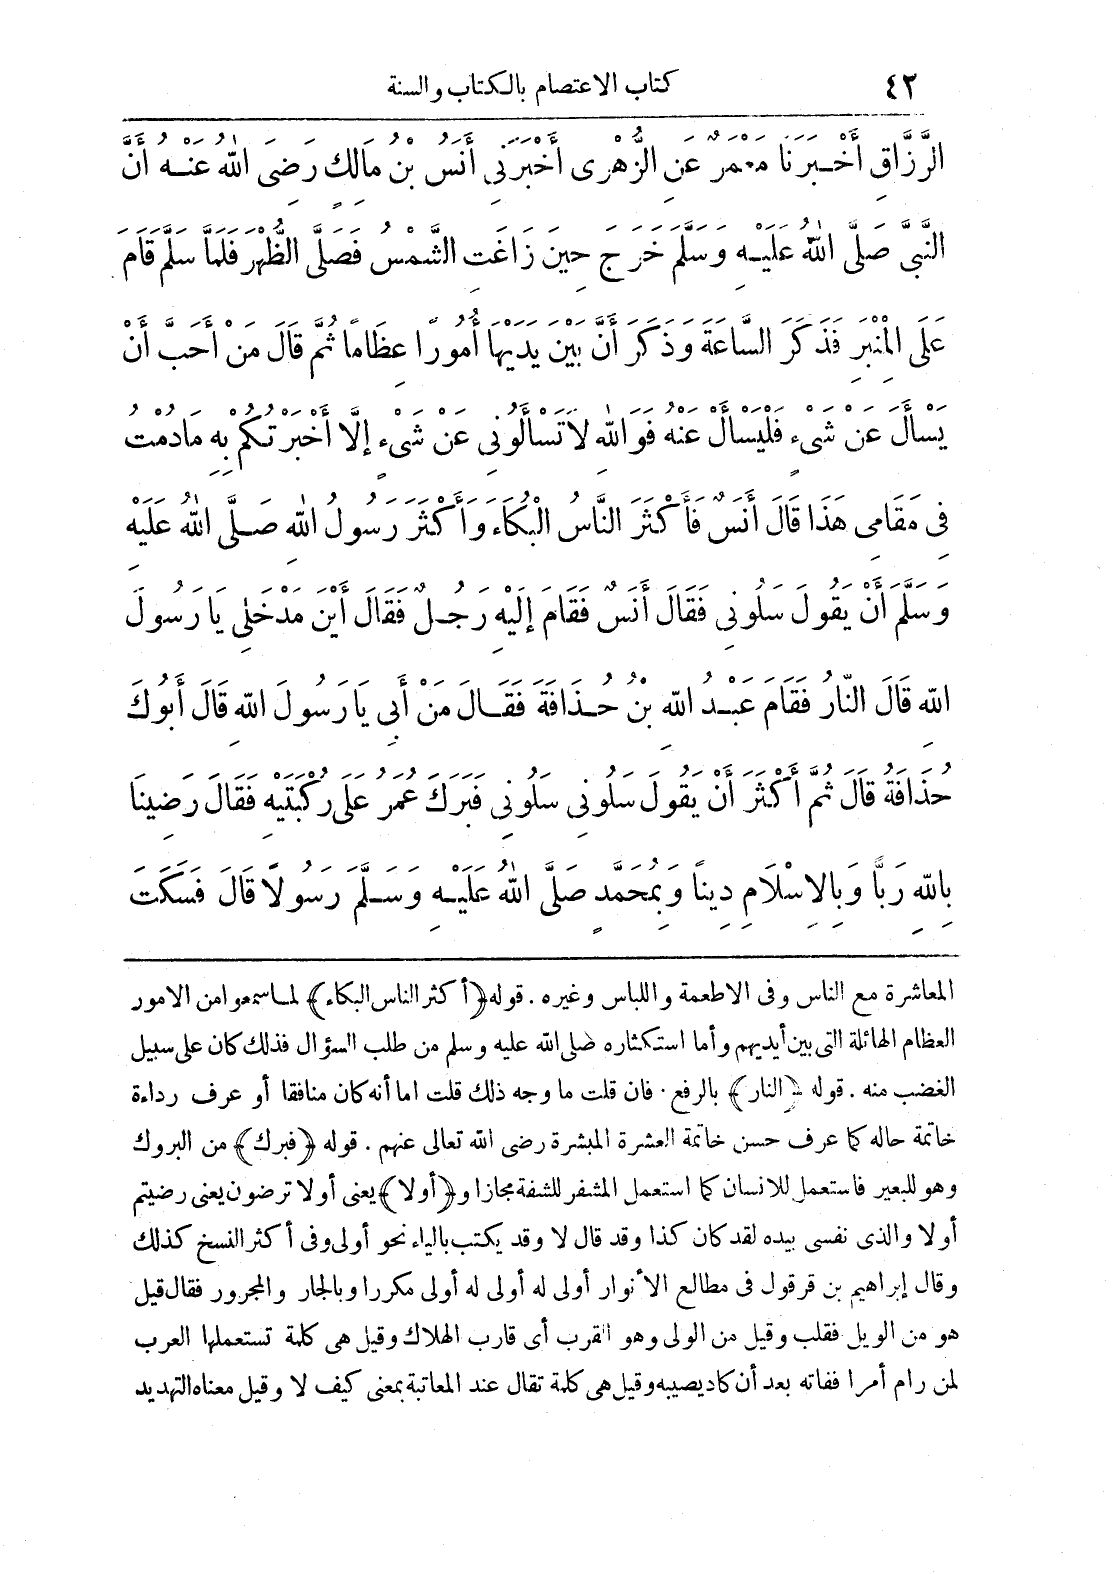 ٤٢ كتاب الاعتصام بالكتاب والسنة
الرَّزَّاقِ أَخْبَرَنَا مَعْمَرٌ عَنِ الزُّهْرِى أَخْبَرَنِى أَنَسُ بْنُ مَالِكٍ رَضِىَ اللّٰهُ عَنْهُ أَنَّ
النَّبِىَّ صَلَّى اللّٰهُ عَلَيْهِ وَسَلَّمَ خَرَجَ حِينَ زَاغَتِ الشَّمْسُ فَصَلَّى الظُّهْرَ فَلَمَّا سَلَّمَ قَامَ
عَلَى الْمِنْبَرِ فَذَكَرَ السَّاعَةَ وَذَكَرَ أَنَّ بَيْنَ يَدَيْهَا أُمُورًا عِظَامًا ثُمَّ قَالَ مَنْ أَحَبَّ أَنْ
يَسْأَلَ عَنْ شَىْءٍ فَلْيَسْأَلْ عَنْهُ فَوَاللّٰهِ لَا تَسْأَلُونِى عَنْ شَىْءٍ إِلَّا أَخْبَرْتُكُمْ بِهِ مَا دُمْتُ
فِى مَقَامِى هَذَا قَالَ أَنَسٌ فَأَكْثَرَ النَّاسُ الْبُكَاءَ وَأَكْثَرَ رَسُولُ اللّٰهِ صَلَّى اللّٰهُ عَلَيْهِ
وَسَلَّمَ أَنْ يَقُولَ سَلُونِى فَقَالَ أَنَسٌ فَقَامَ إِلَيْهِ رَجُلٌ فَقَالَ أَيْنَ مَدْخَلِى يَا رَسُولَ
اللّٰهِ قَالَ النَّارُ فَقَامَ عَبْدُ اللّٰهِ بْنُ حُذَافَةَ فَقَالَ مَنْ أَبِى يَا رَسُولَ اللّٰهِ قَالَ أَبُوكَ
حُذَافَةُ قَالَ ثُمَّ أَكْثَرَ أَنْ يَقُولَ سَلُونِى سَلُونِى فَبَرَكَ عُمَرُ عَلَى رُكْبَتَيْهِ فَقَالَ رَضِينَا
بِاللّٰهِ رَبًّا وَبِالإِسْلَامِ دِينًا وَبِمُحَمَّدٍ صَلَّى اللّٰهُ عَلَيْهِ وَسَلَّمَ رَسُولًا قَالَ فَسَكَتَ
المعاشرة مع الناس وفى الاطعمة واللباس وغيره . قوله ﴿أكثر الناس البكاء﴾ لما سمعوا من الامور
العظام الهائلة التى بين أيديهم وأما استكثاره صلى الله عليه وسلم من طلب السؤال فذلك كان على سبيل
الغضب منه . قوله ﴿النار﴾ بالرفع . فان قلت ما وجه ذلك قلت اما أنه كان منافقا أو عرف رداءة
خاتمة حاله كما عرف حسن خاتمة العشرة المبشرة رضى الله تعالى عنهم . قوله ﴿فبرك﴾ من البروك
وهو للبعير فاستعمل للانسان كما استعمل المشفر للشفة مجازا و﴿أولا﴾ يعنى أولا ترضون يعنى رضيتم
أولا والذى نفسى بيده لقد كان كذا وقد قال لا وقد يكتب بالياء نحو أولى وفى أكثر النسخ كذلك
وقال إبراهيم بن قرقول فى مطالع الأنوار أولى له أولى له أولى مكررا وبالجار والمجرور فقال قيل
هو من الويل فقلب وقيل من الولى وهو القرب أى قارب الهلاك وقيل هى كلمة تستعملها العرب
لمن رام أمرا ففاته بعد أن كاد يصيبه وقيل هى كلمة تقال عند المعاتبة بمعنى كيف لا وقيل معناه التهديد